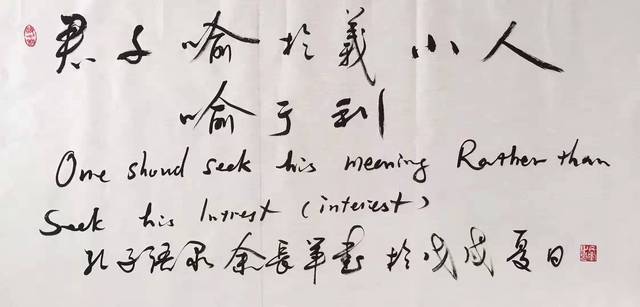 君子喻於義小人
喻于利
One shoud seek his meening Rather than
Seek his Intrest (interest)
孔子语录 余長 書於戊戌夏日